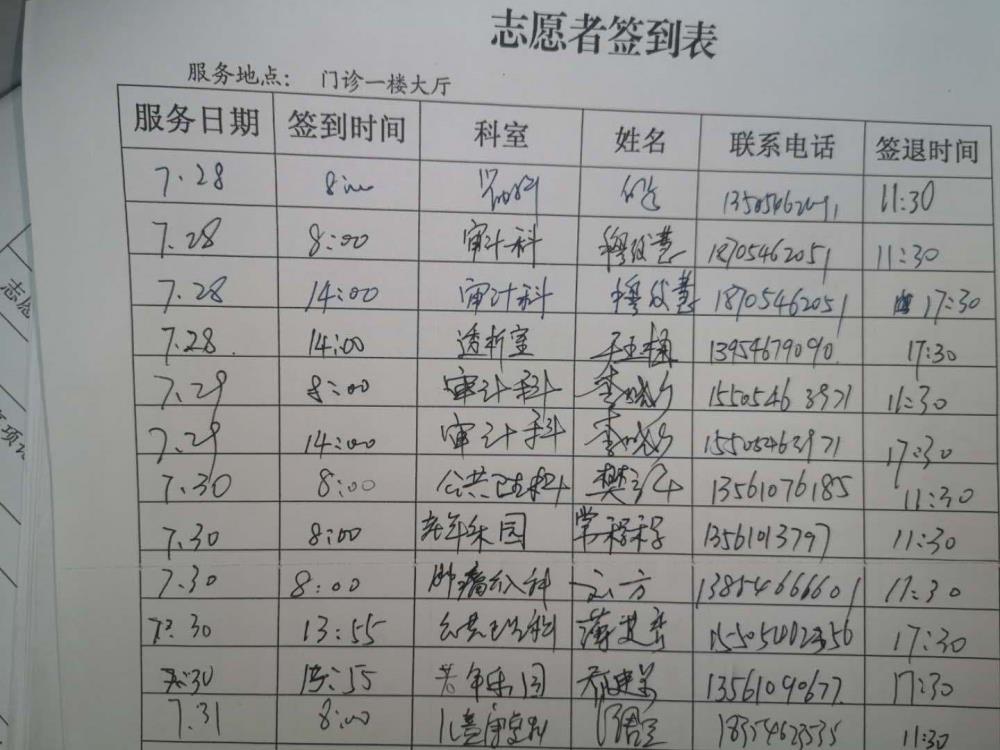 志愿者签到表
服务地点： 门诊一楼大厅
服务日期 签到时间 科室 姓名 联系电话 签退时间
7.28 8:00 11:30
7.28 8:00 审计科 18705462051 11:30
7.28 14:00 审计科 18705462051 17:30
7.28 14:00 透析室 13954679090 17:30
7.29 8:00 审计科 李晓 15505463971 11:30
7.29 14:00 审计科 李晓 15505463971 17:30
7.30 8:00 公共卫生科 樊 13561076185 11:30
7.30 8:00 老年乐园 常 13561013797 11:30
7.30 8:00 肿瘤 科 方 13854666601 11:30
7.30 13:55 公共卫生科 薄 17:30
7.30 13:55 老年乐园 乔建 13561090677 17:30
7.31 8:00 儿童 18354623535 11:30
志愿
项